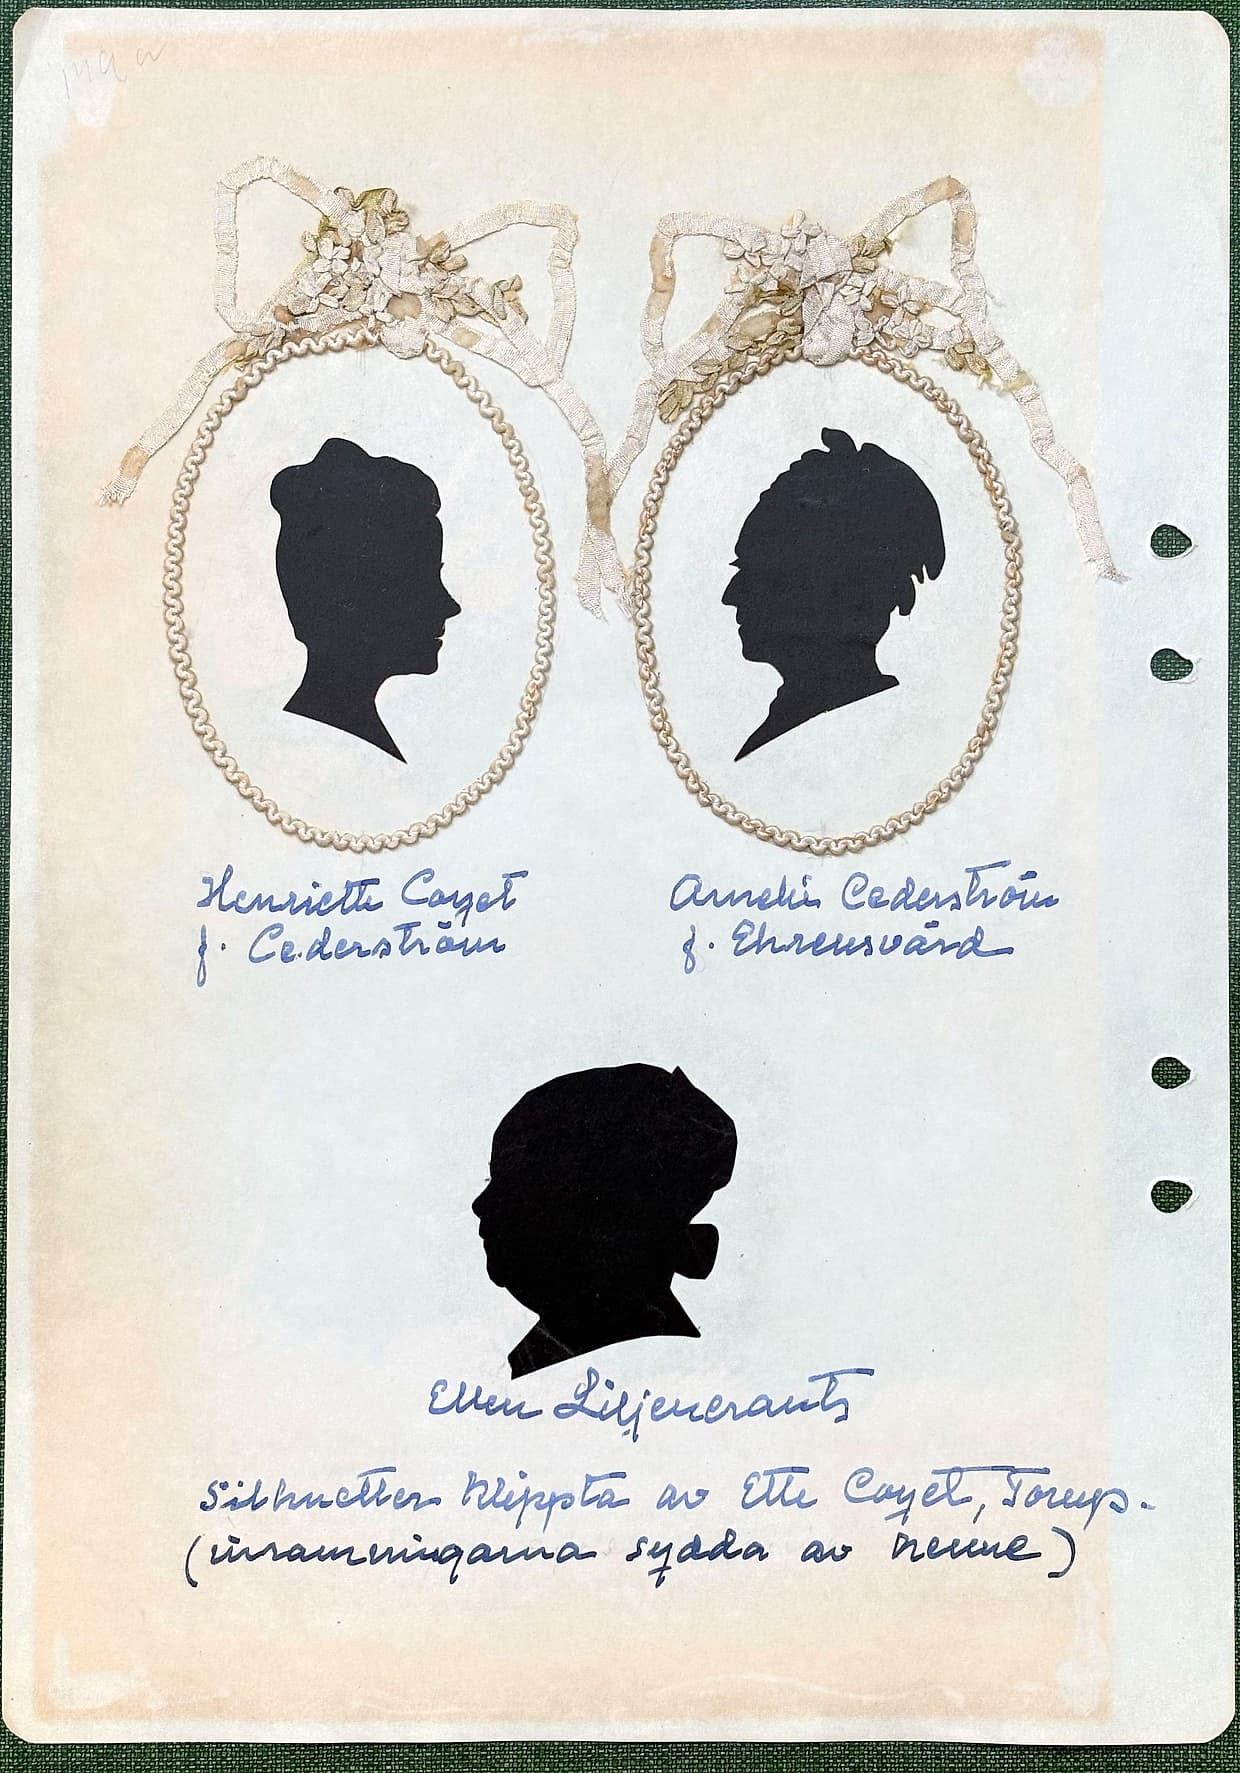 Henriette Coyet
f. Cederström
Amelie Cederström
f. Ehrensvärd
Ellen Liljencrants
Silhuetter klippta av Ette Coyet, Torup.
(inramningarna sydda av henne)